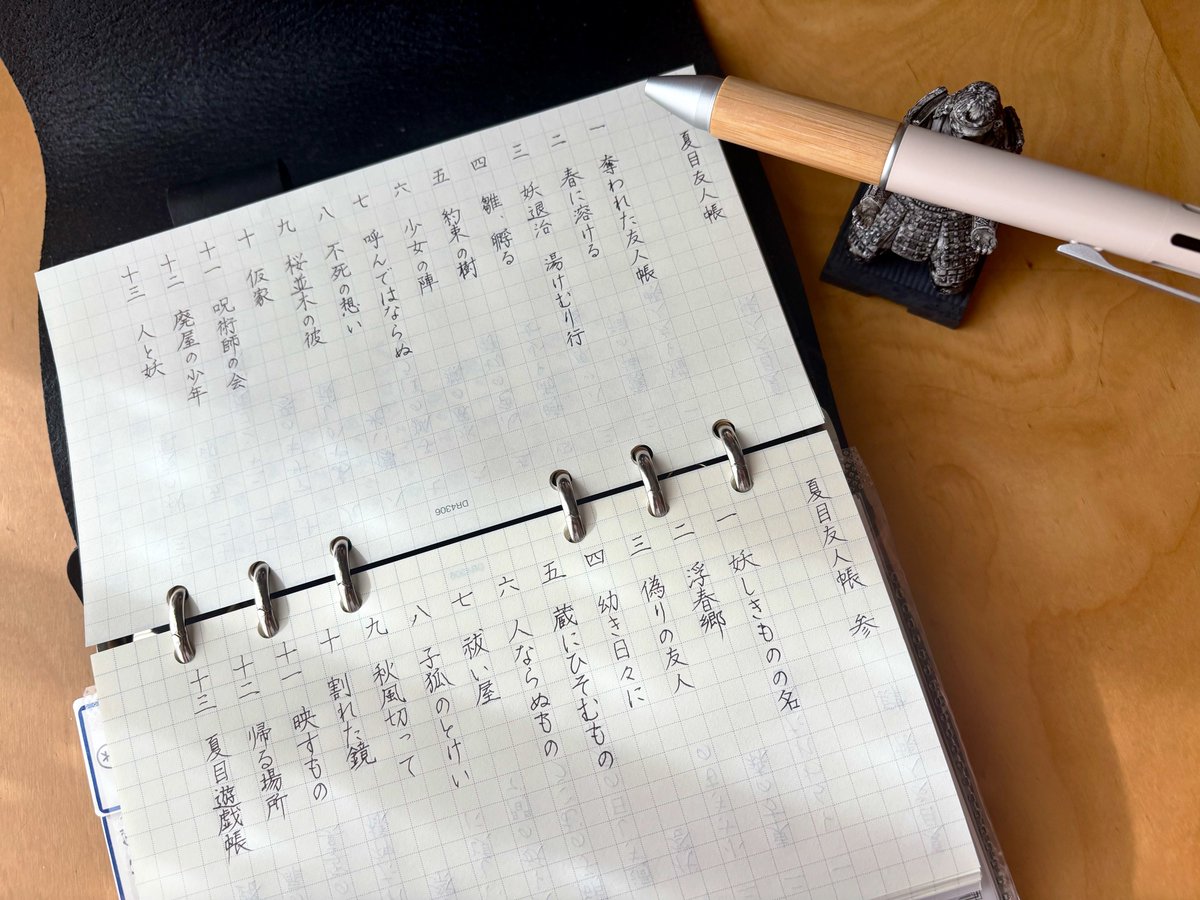 夏目友人帳
一 奪われた友人帳
二 春に溶ける
三 妖退治 湯けむり行
四 雛、孵る
五 約束の樹
六 少女の陣
七 呼んではならぬ
八 不死の想い
九 桜並木の彼
十 仮家
十一 呪術師の会
十二 廃屋の少年
十三 人と妖
DR4306
夏目友人帳 参
一 妖しきものの名
二 浮春郷
三 偽りの友人
四 幼き日々に
五 蔵にひそむもの
六 人ならぬもの
七 祓い屋
八 子狐のとけい
九 秋風切って
十 割れた鏡
十一 映すもの
十二 帰る場所
十三 夏目遊戯帳